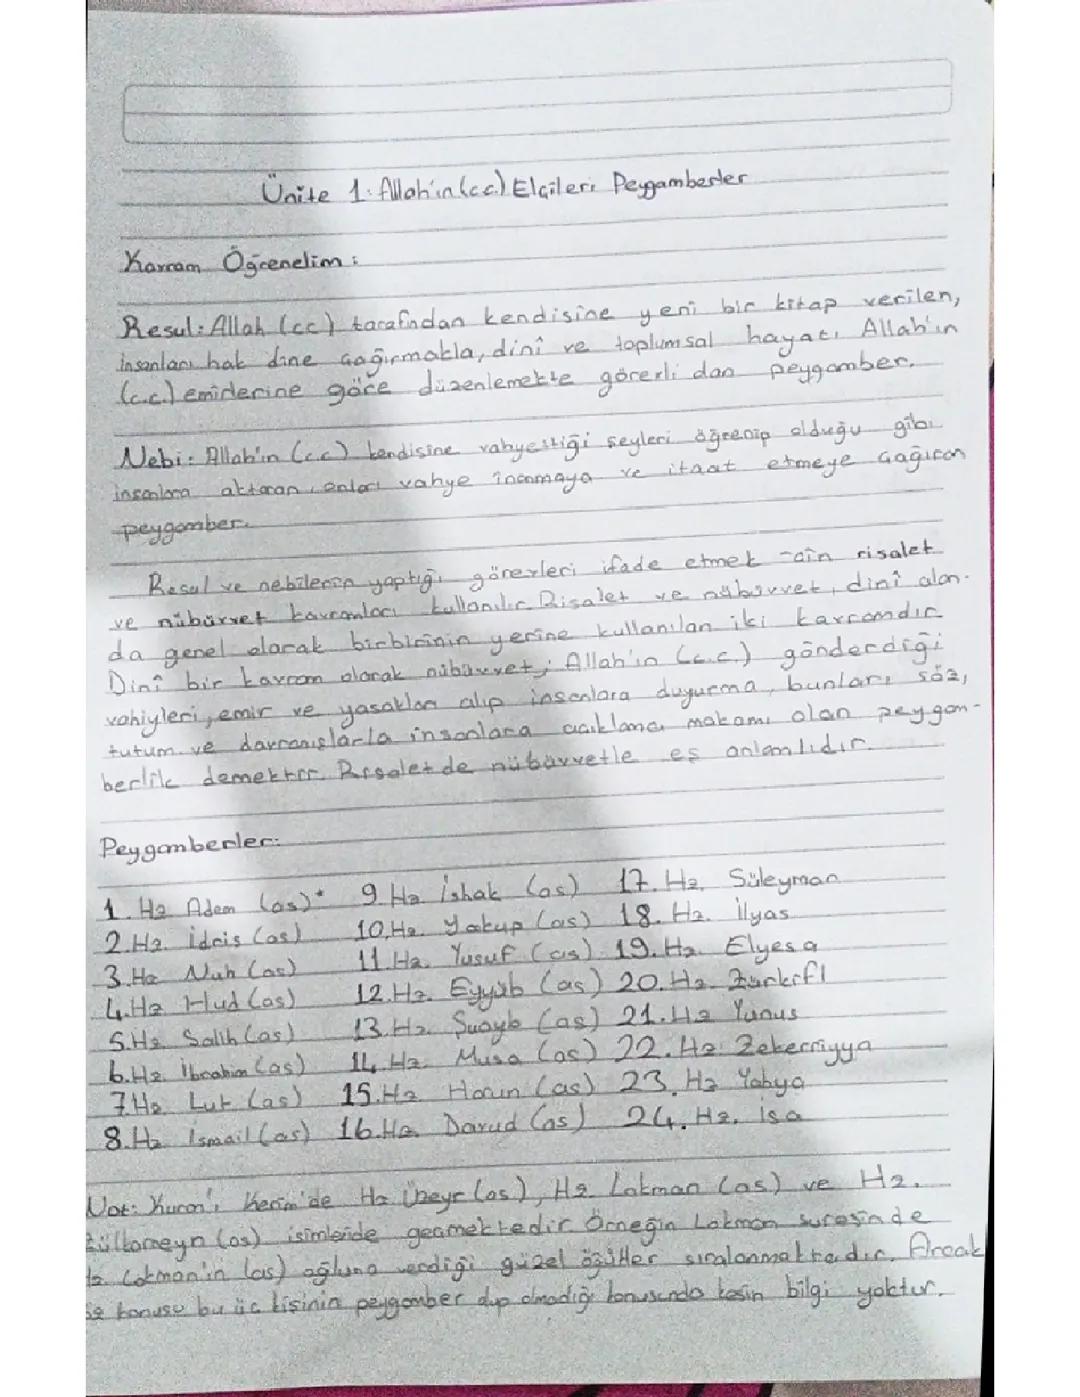 Ünite 1: Allah'ın (c.c.) Elçileri Peygamberler
Kavram Öğrenelim :
Resul: Allah (cc) tarafından kendisine yeni bir kitap verilen,
insanları hak dine çağırmakla, dinî ve toplumsal hayatı Allah'ın
(c.c.) emirlerine göre düzenlemekte görevli olan peygamber.
Nebi: Allah'ın (c.c) kendisine vahyettiği şeyleri öğrenip olduğu gibi
insanlara aktaran, onları vahye inanmaya ve itaat etmeye çağıran
peygamber.
Resul ve nebilerin yaptığı görevleri ifade etmek için risalet
ve nübüvvet kavramları kullanılır. Risalet ve nübüvvet, dinî alan-
da genel olarak birbirinin yerine kullanılan iki kavramdır.
Dinî bir kavram olarak nübüvvet; Allah'ın (c.c.) gönderdiği
vahiyleri, emir ve yasakları alıp insanlara duyurma, bunları söz,
tutum ve davranışlarla insanlara açıklama makamı olan peygam-
berlik demektir. Risalet de nübüvvetle eş anlamlıdır.
Peygamberler:
1. Hz Adem (as)* 9. Hz İshak (as) 17. Hz. Süleyman
2. Hz. İdris (as) 10. Hz. Yakup (as) 18. Hz. İlyas
3. Hz Nuh (as) 11. Hz. Yusuf (as) 19. Hz. Elyesa
4. Hz Hud (as) 12. Hz. Eyyüb (as) 20. Hz. Zünkifl
5. Hz. Salih (as) 13. Hz. Şuayb (as) 21. Hz Yunus
6. Hz. İbrahim (as) 14. Hz. Musa (as) 22. Hz. Zekeriyya
7. Hz. Lut (as) 15. Hz Harun (as) 23. Hz Yahya
8. Hz İsmail (as) 16. Hz. Davud (as) 24. Hz. İsa
Not: Kuran'ı Kerim'de Hz Üzeyr (as), Hz. Lokman (as) ve Hz.
Zülkarneyn (as) isimleride geçmektedir. Örneğin Lokman suresinde
Hz Lokman'ın (as) oğluna verdiği güzel öğütler sıralanmaktadır. Ancak
söz konusu bu üç kişinin peygamber olup olmadığı konusunda kesin bilgi yoktur.